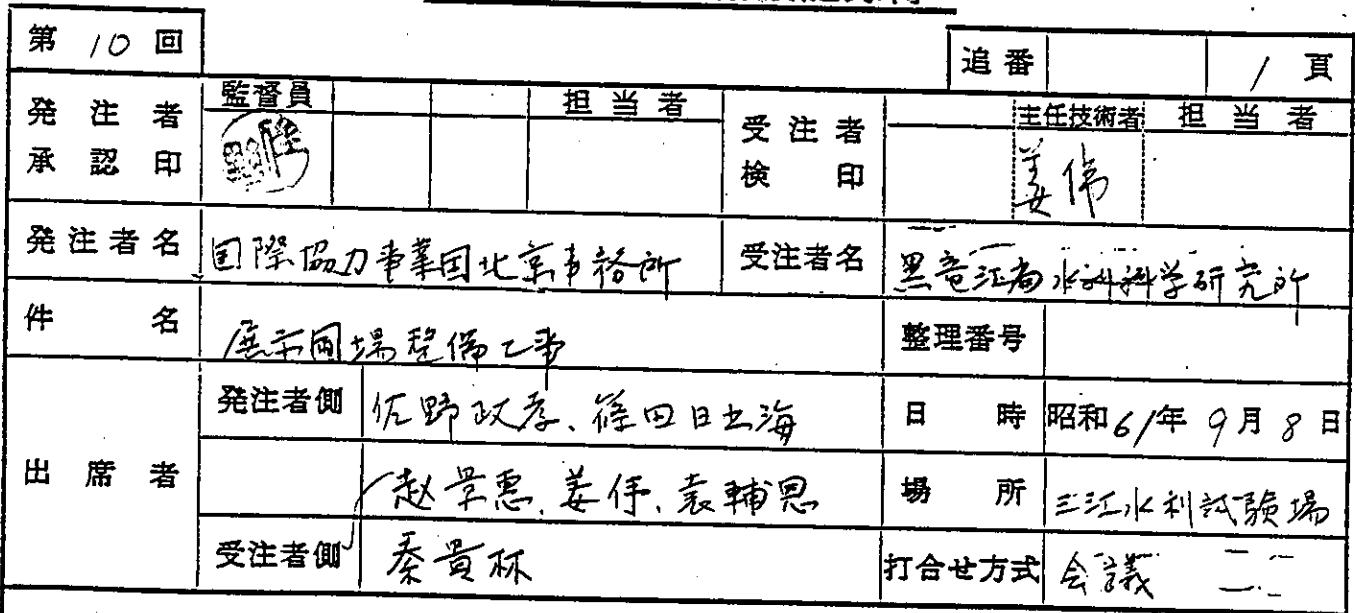 第 10 回
追番 1 頁
発注者承認印 監督員 担当者 受注者検印 主任技術者 担当者
姜偉
発注者名 国際協力事業団北京事務所 受注者名 黒竜江省水利科学研究所
件名 展示圃場整備工事 整理番号
出席者 発注者側 佐野政孝、篠田日出海 日時 昭和61年9月8日
赵景惠、姜伟、袁輔恩 場所 三江水利試験場
受注者側 秦貴林 打合せ方式 会議